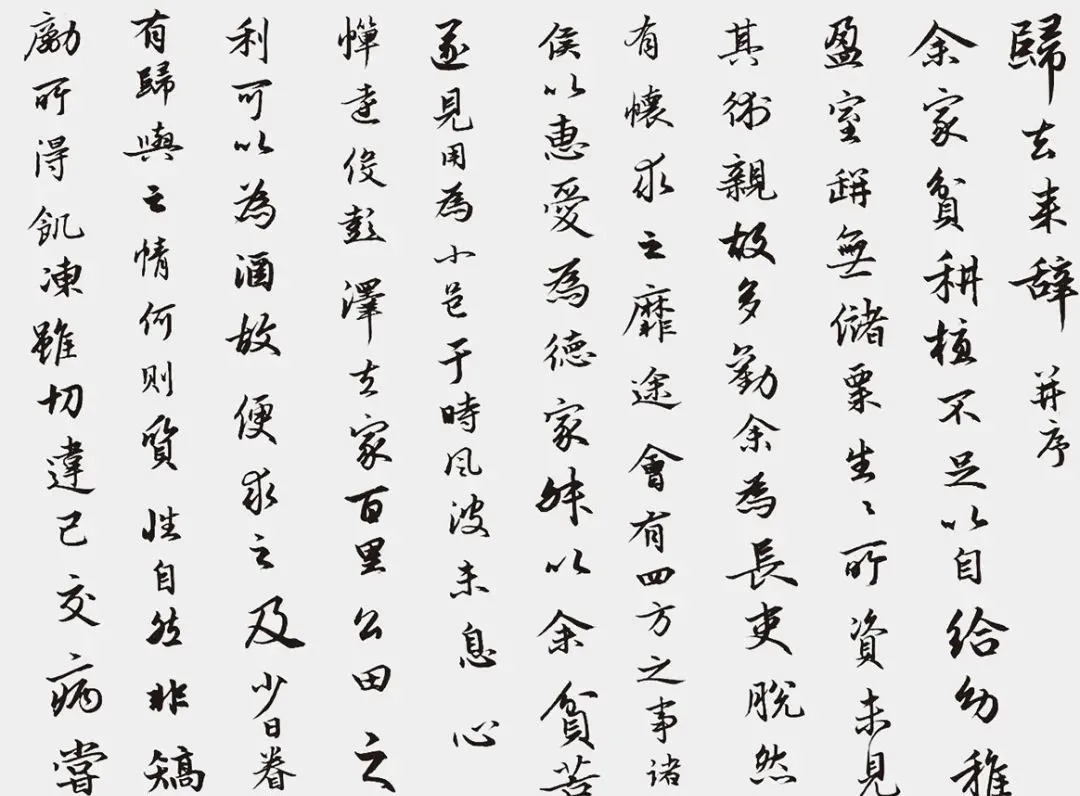 歸去来辭 并序
余家貧耕植不足以自給幼稚
盈室缾無儲粟生〻所資未見
其術親故多勸余為長吏脫然
有懷求之靡途會有四方之事諸
侯以惠愛為德家叔以余貧苦
遂見用為小邑于時風波未息心
憚遠役彭澤去家百里公田之
利可以為酒故便求之及少日眷
有歸與之情何則質性自然非矯
勵所得飢凍雖切違己交病嘗